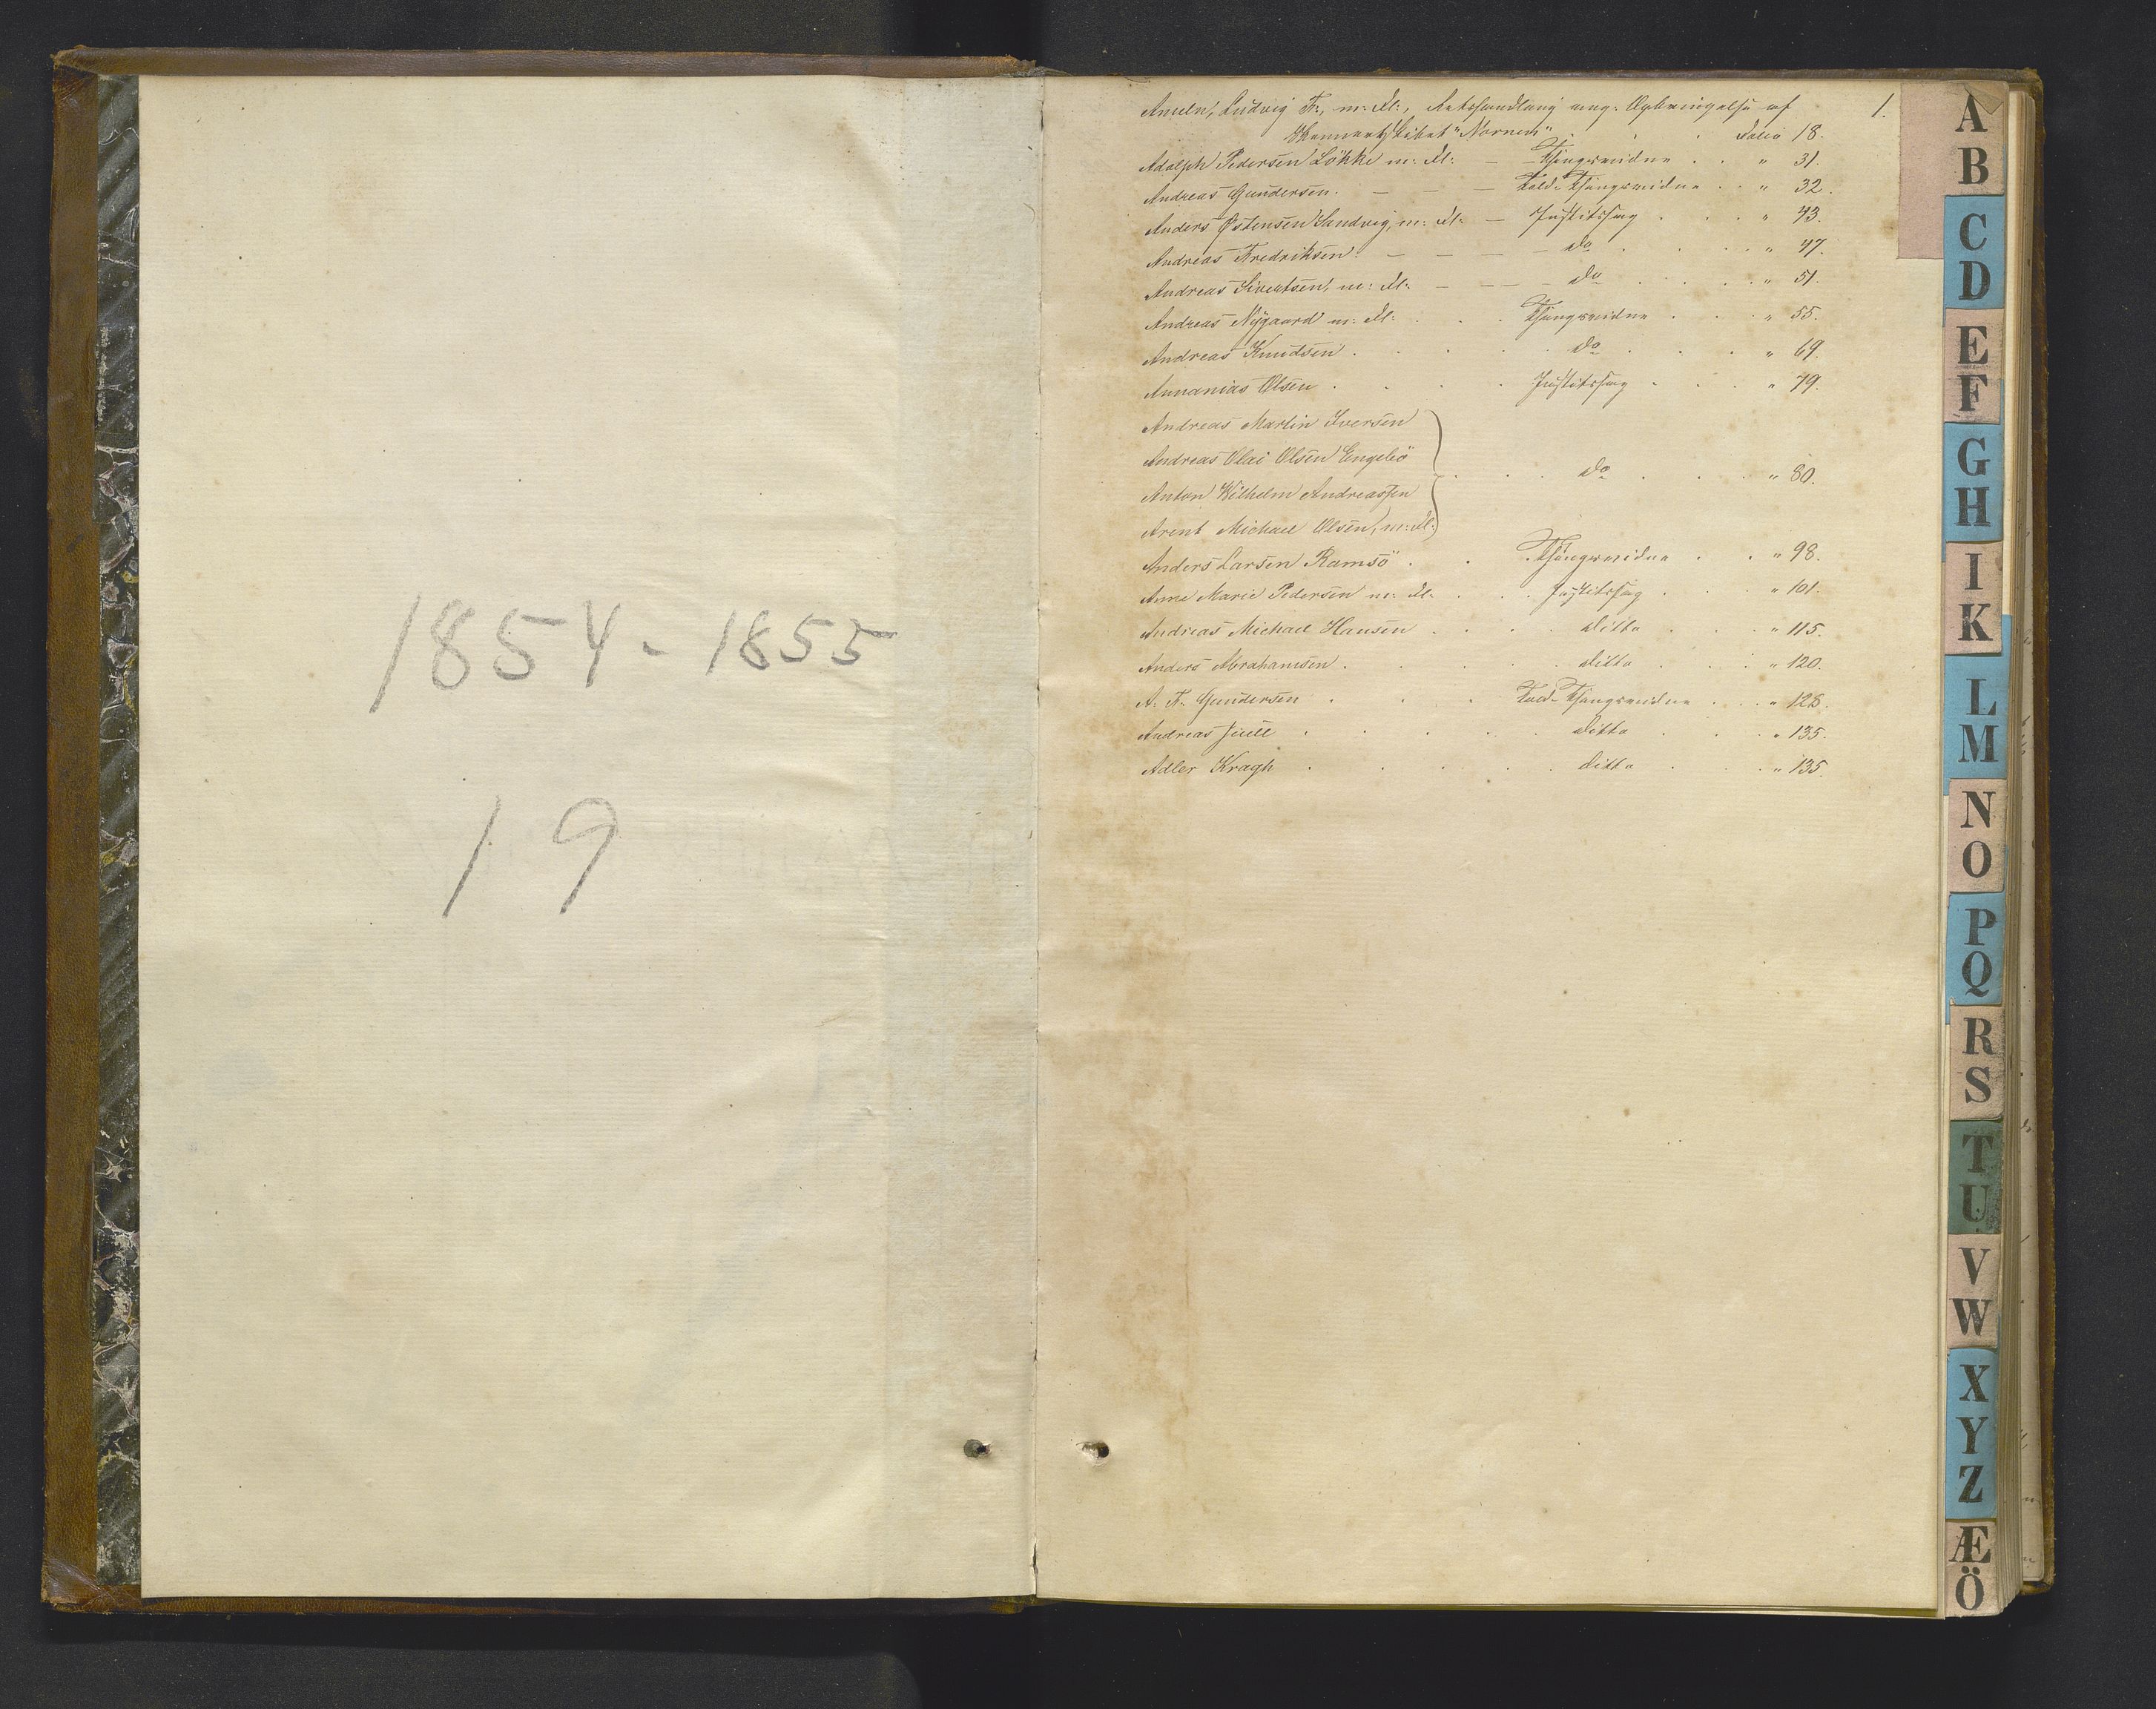 1854 - 1855
19
1.
Ameln, Ludvig Fr., m: Fl:, Retshandling ang: Opbringelse af
"Nornen" . . . Folio 18.
Adolph Pedersen Løkke m: Fl: — Thingsvidne . . " 31.
Andreas Gundersen. — — — Told-Thingsvidne . . " 32.
Anders Østensen Sandvig, m: Fl: — Justitssag . . . " 43.
Andreas Fredriksen. — — — — do . . . " 47.
Andreas Sivertsen, m: Fl: — — — do . . . " 51.
Andreas Nÿgaard m: Fl: . . . Thingsvidne . . . " 55.
Andreas Knudsen . . . . . do . . . " 69.
Annanias Olsen . . . . Justitssag . . . " 79.
Andreas Martin Iversen
Andreas Olai Olsen Engelsö
Anton Wilhelm Andreassen . . . do . . . " 80.
Arent Michael Olsen, m: Fl:
Anders Larsen Ramsö . . . Thingsvidne . . " 98.
Anne Marie Pedersen m: Fl: . . . Justitssag . . . " 101.
Andreas Michael Hansen . . . . ditto . . . " 115.
Anders Abrahamsen . . . . . ditto . . . " 120.
A. F. Gundersen . . . Told-Thingsvidne . . . " 128.
Andreas Juell . . . . . ditto . . . " 135.
Adler Kragh . . . . . ditto . . . " 135.
A
B
C
D
E
F
G
H
I
K
L
M
N
O
P
Q
R
S
T
U
V
W
X
Y
Z
Æ
Ö